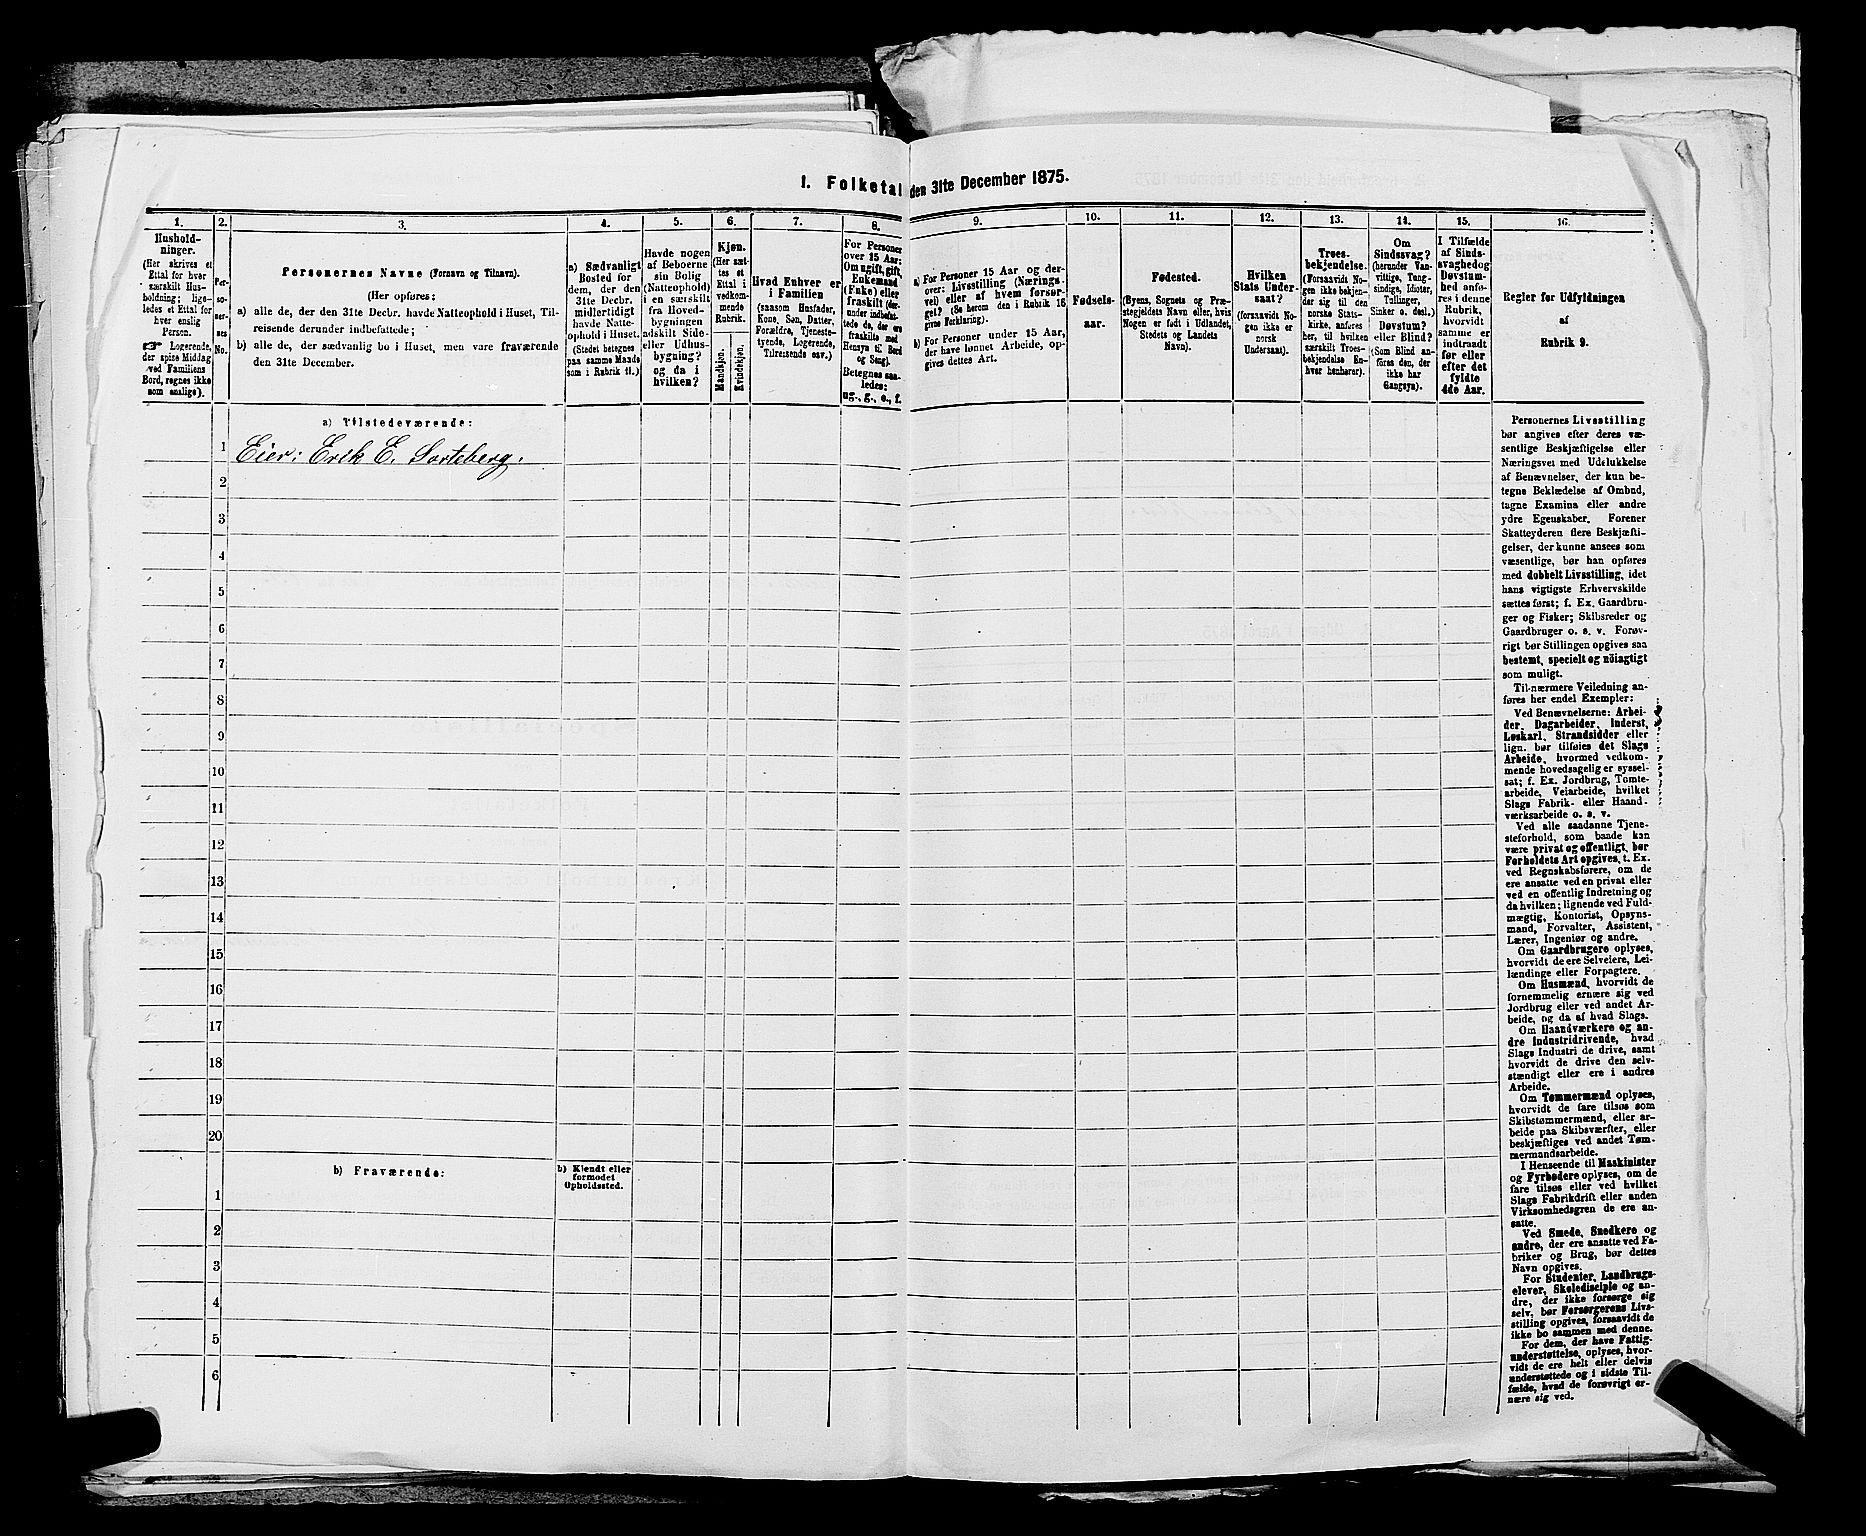 I. Folketal den 31te December 1875.
1.
Hushold-
ninger.
(Her skrives et
Ettal for hver
særskilt Hus-
holdning; lige-
ledes et Ettal for
hver enslig
Person.
☞ Logerende,
der spise Middag
ved Familiens
Bord, regnes ikke
som enslige).
2.
Per-
so-
ner-
nes
No.
3.
Personernes Navne (Fornavn og Tilnavn).
(Her opføres:
a) alle de, der den 31te Decbr. havde Natteophold i Huset, Til-
reisende derunder indbefattede;
b) alle de, der sædvanlig bo i Huset, men vare fraværende
den 31te December.
4.
a) Sædvanligt
Bosted for
dem, der den
31te Decbr.
midlertidigt
havde Natte-
ophold i Huset.
(Stedet betegnes
paa samme Maade
som i Rubrik 11.)
5.
Havde nogen
af Beboerne
sin Bolig
(Natteophold)
i en særskilt
fra Hoved-
bygningen
adskilt Side-
eller Udhus-
bygning?
og da i
hvilken?
6.
Kjøn.
(Her sæt-
tes et
Ettal i
vedkom-
mende
Rubrik.
Mandkjøn.
Kvindekjøn.
7.
Hvad Enhver er
i Familien
(saasom Husfader,
Kone, Søn, Datter,
Forældre, Tjeneste-
tyende, Logerende,
Tilreisende osv.)
8.
For Personer
over 15 Aar:
Om ugift, gift,
Enkemand
(Enke) eller
fraskilt (der-
under indbefat-
tede de, der ere
fraskilte med
Hensyn til Bord
og Seng).
Betegnes saa-
ledes:
ug., g., e., f.
9.
a) For Personer 15 Aar og der-
over: Livsstilling (Nærings-
vei) eller af hvem forsør-
get? (Se herom den i Rubrik 16
givne Forklaring).
b) For Personer under 15 Aar,
der have lønnet Arbeide, op-
gives dettes Art.
10.
Fødsels-
aar.
11.
Fødested.
(Byens, Sognets og Præ-
stegjeldets Navn eller, hvis
Nogen er født i Udlandet,
Stedets og Landets
Navn).
12.
Hvilken
Stats Under-
saat?
(forsaavidt No-
gen ikke er
norsk
Undersaat).
13.
Troes-
bekjendelse.
(Forsaavidt No-
gen ikke bekjen-
der sig til den
norske Stats-
kirke, anføres
her, til hvilken
særskilt Troes-
bekjendelse En-
hver henhører).
14.
Om
Sindssvag?
(herunder Van-
vittige, Tung-
sindige, Idioter,
Tullinger,
Sinker o. desl.)
Døvstum?
eller Blind?
(Som Blind an-
føres den, der
ikke har
Gangsyn).
15.
I Tilfælde
af Sinds-
svaghed og
Døvstum-
hed anfø-
res i denne
Rubrik,
hvorvidt
samme er
indtraadt
før eller
efter det
fyldte
4de Aar.
16.
Regler for Udfyldningen
af
Rubrik 9.
a) Tilstedeværende:
1 Eier: Erik E. Sorteberg.
2
3
4
5
6
7
8
9
10
11
12
13
14
15
16
17
18
19
20
b) Fraværende:
b) Kjendt eller
formodet
Opholdssted.
1
2
3
4
5
6
Personernes Livsstilling
bør angives efter deres væ-
sentlige Beskjæftigelse eller
Næringsvei med Udelukkelse
af Benævnelser, der kun be-
tegne Beklædelse af Ombud,
tagne Examina eller andre
ydre Egenskaber. Forener
Skatteyderen flere Beskjæfti-
gelser, der kunne ansees som
væsentlige, bør han opføres
med dobbelt Livsstilling, idet
hans vigtigste Erhvervskilde
sættes først; f. Ex. Gaardbru-
ger og Fisker; Skibsreder og
Gaardbruger o. s. v. Forøv-
rigt bør Stillingen opgives saa
bestemt, specielt og nöiagtigt
som muligt.
Til nærmere Veiledning an-
føres her endel Exempler:
Ved Benævnelserne: Arbei-
der, Dagarbeider, Inderst,
Løskarl, Strandsidder eller
lign. bør tilføies det Slags
Arbeide, hvormed vedkom-
mende hovedsagelig er syssel-
sat; f. Ex. Jordbrug, Tomte-
arbeide, Veiarbeide, hvilket
Slags Fabrik- eller Haand-
værksarbeide o. s. v.
Ved alle saadanne Tjene-
steforhold, som baade kan
være privat og offentligt, bør
Forholdets Art opgives, t. Ex.
ved Regnskabsførere, om de
ere ansatte ved en privat eller
ved en offentlig Indretning og
da hvilken; lignende ved Fuld-
mægtig, Kontorist, Opsyns-
mand, Forvalter, Assistent,
Lærer, Ingeniør og andre.
Om Gaardbrugere oplyses,
hvorvidt de ere Selveiere, Lei-
lændinge eller Forpagtere.
Om Husmænd, hvorvidt de
fornemmelig ernære sig ved
Jordbrug eller ved andet Ar-
beide, og da af hvad Slags.
Om Haandværkere og an-
dre Industridrivende, hvad
Slags Industri de drive, samt
hvorvidt de drive den selv-
stændigt eller ere i andres
Arbeide.
Om Tømmermænd oplyses,
hvorvidt de fare tilsøs som
Skibstømmermænd, eller ar-
beide paa Skibsværfter, eller
beskjæftiges ved andet Tøm-
mermandsarbeide.
I Henseende til Maskinister
og Fyrbødere oplyses, om de
fare tilsøs eller ved hvilket
Slags Fabrikdrift eller anden
Virksomhedsgren de ere an-
satte.
Ved Smede, Snedkere og
andre, der ere ansatte ved Fa-
briker og Brug, bør dettes
Navn opgives.
For Studenter, Landbrugs-
elever, Skoledisciple og an-
dre, der ikke forsørge sig
selv, bør Forsørgerens Livs-
stilling opgives, forsaavidt de
ikke bo sammen med denne.
For dem, der have Fattig-
understøttelse, oplyses, hvor-
vidt de ere helt eller delvis
understøttede og i sidste Til-
fælde, hvad de forøvrigt er-
nære sig ved.